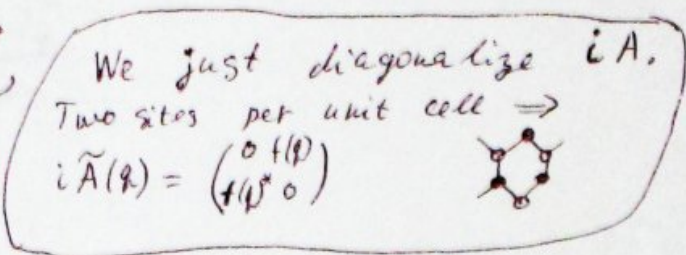 We just diagonalize iA.
Two sites per unit cell ⇒
i Ã(q) = ( 0 f(q)
f(q)* 0 )